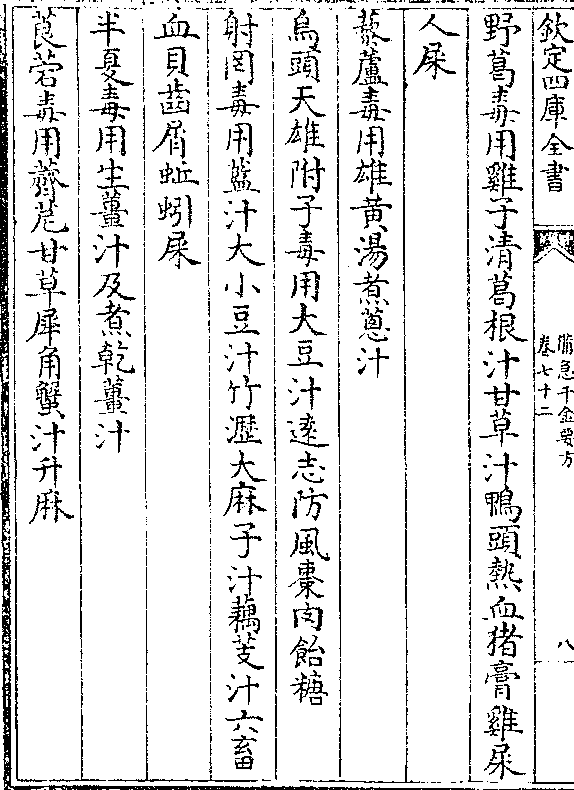 欽定四庫全書
備急千金要方
卷七十二
八
野葛毒用雞子清葛根汁甘草汁鴨頭熱血猪膏雞屎
人屎
藜蘆毒用雄黃湯煮蔥汁
烏頭天雄附子毒用大豆汁遠志防風棗肉飴糖
射罔毒用藍汁大小豆汁竹瀝大麻子汁藕芰汁六畜
血貝齒屑蚯蚓屎
半夏毒用生薑汁及煮乾薑汁
莨菪毒用薺苨甘草犀角蟹汁升麻